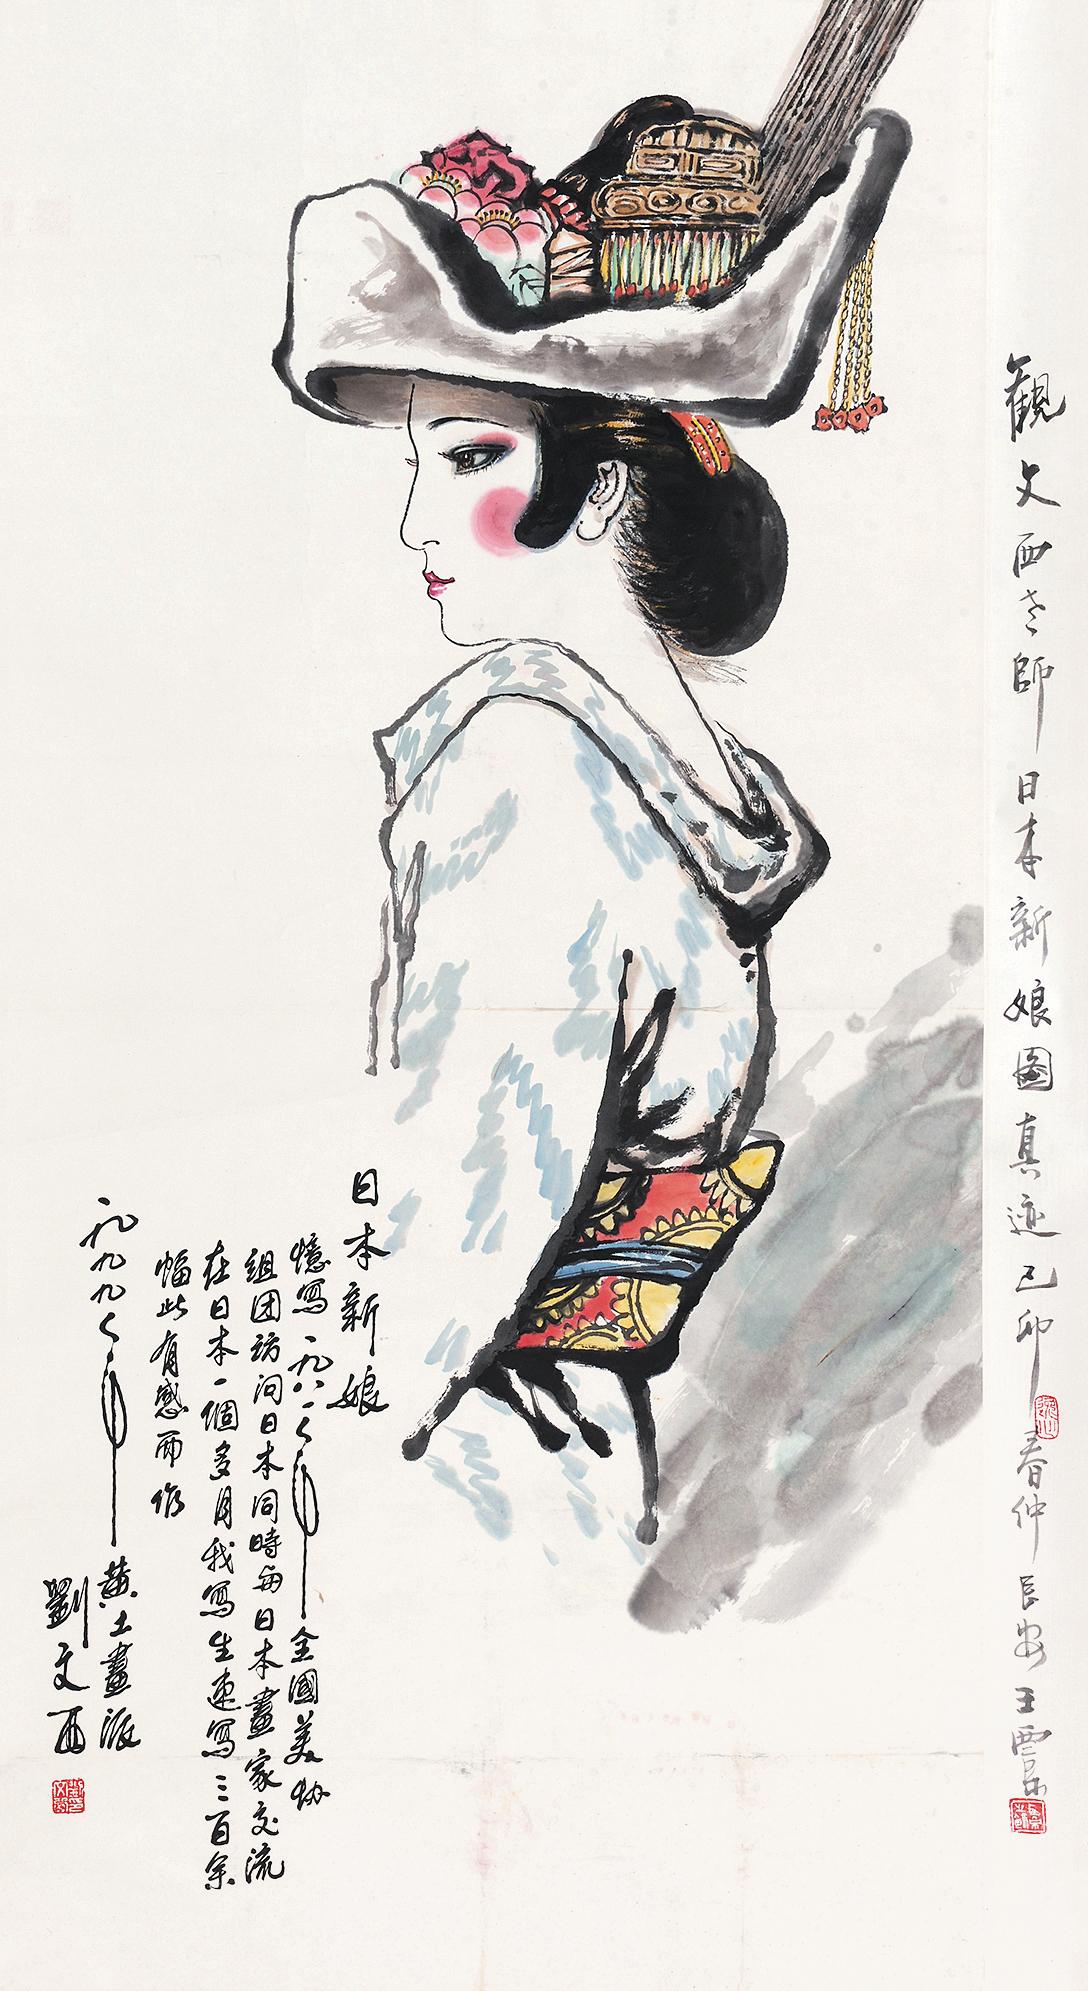 觀文西老師日本新娘圖真迹己卯春仲長安王西京
日本新娘
憶寫一九八一年全國美协
組团訪问日本同時與日本畫家交流
在日本一個多月我寫生速寫三百余
幅此有感而作
一九九九年黄土畫派
劉文西